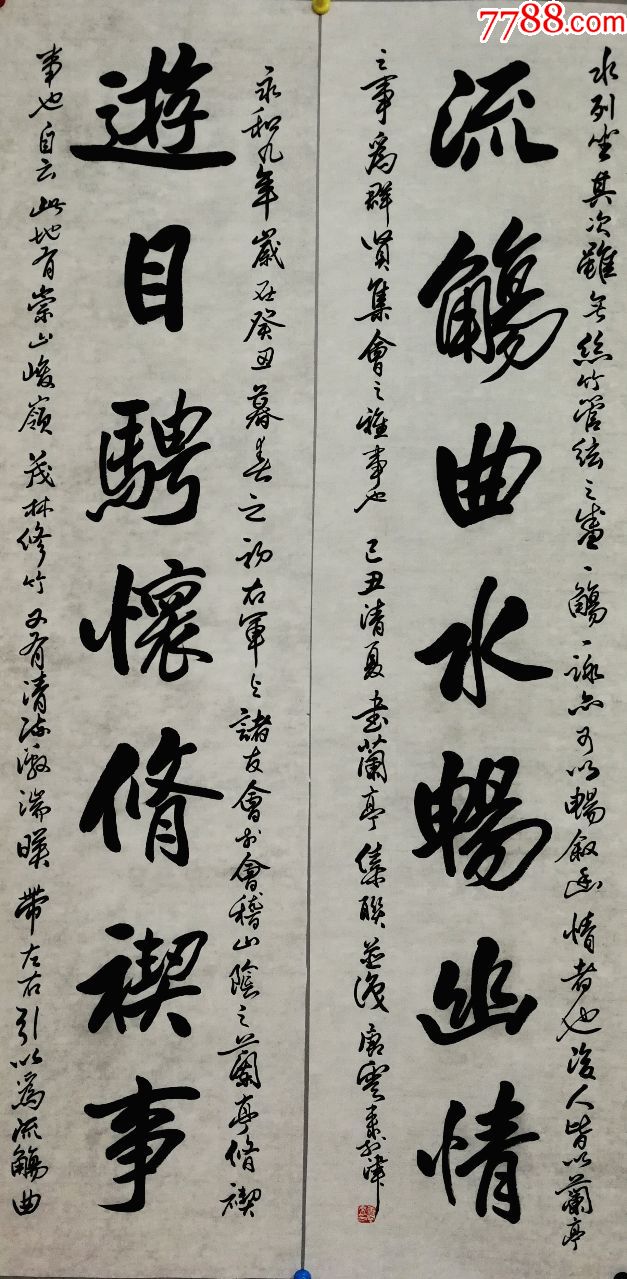 7788.com
遊目騁懷脩禊事
永和九年歲在癸丑暮春之初右軍與諸友會於會稽山陰之蘭亭脩禊
事也自云此地有崇山峻嶺茂林修竹又有清流激湍暎帶左右引以為流觴曲
流觴曲水暢幽情
水列坐其次雖無絲竹管弦之盛一觴一詠亦可以暢敘幽情者也後人皆以蘭亭
之事為群賢集會之雅事也 己丑清夏書蘭亭集聯並識 唐雲來於津